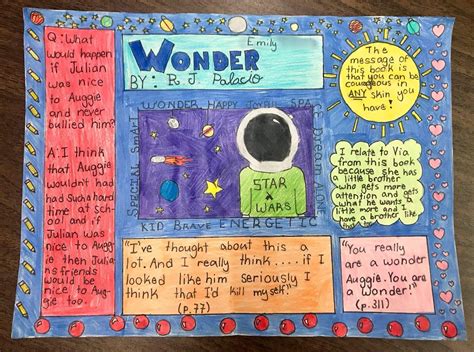 Q: What
would happen
if Julian
was nice
to Auggie
and never
bullied him?
A: I think
that Auggie
wouldn't had
had such a hard
time at sch-
ool and if
Julian was
nice to Augg-
ie then Julia-
ns friends
would be
nice to Aug-
gie too.
Emily
WONDER
BY: R.J. Palacio
WONDER HAPPY Joyful SPACE
Special Smart
Different ALONE
STAR
WARS
KID BRAVE ENERGETIC
The
message of
this book is
that you can be
courageous in
ANY skin you
have!
I relate to Via
from this book
because she has
a little brother
who gets more
attention and gets
what he wants a
little more and I
have a brother like
that.
"I've thought about this a
lot. And I really think.... if I
looked like him seriously I
think that I'd kill myself."
(p.77)
"You really
are a wonder
Auggie. You are
a Wonder!"
(p.311)